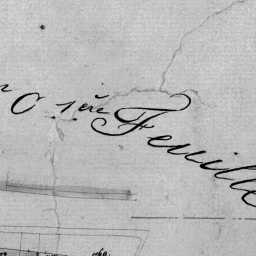 C 1ère Feuille